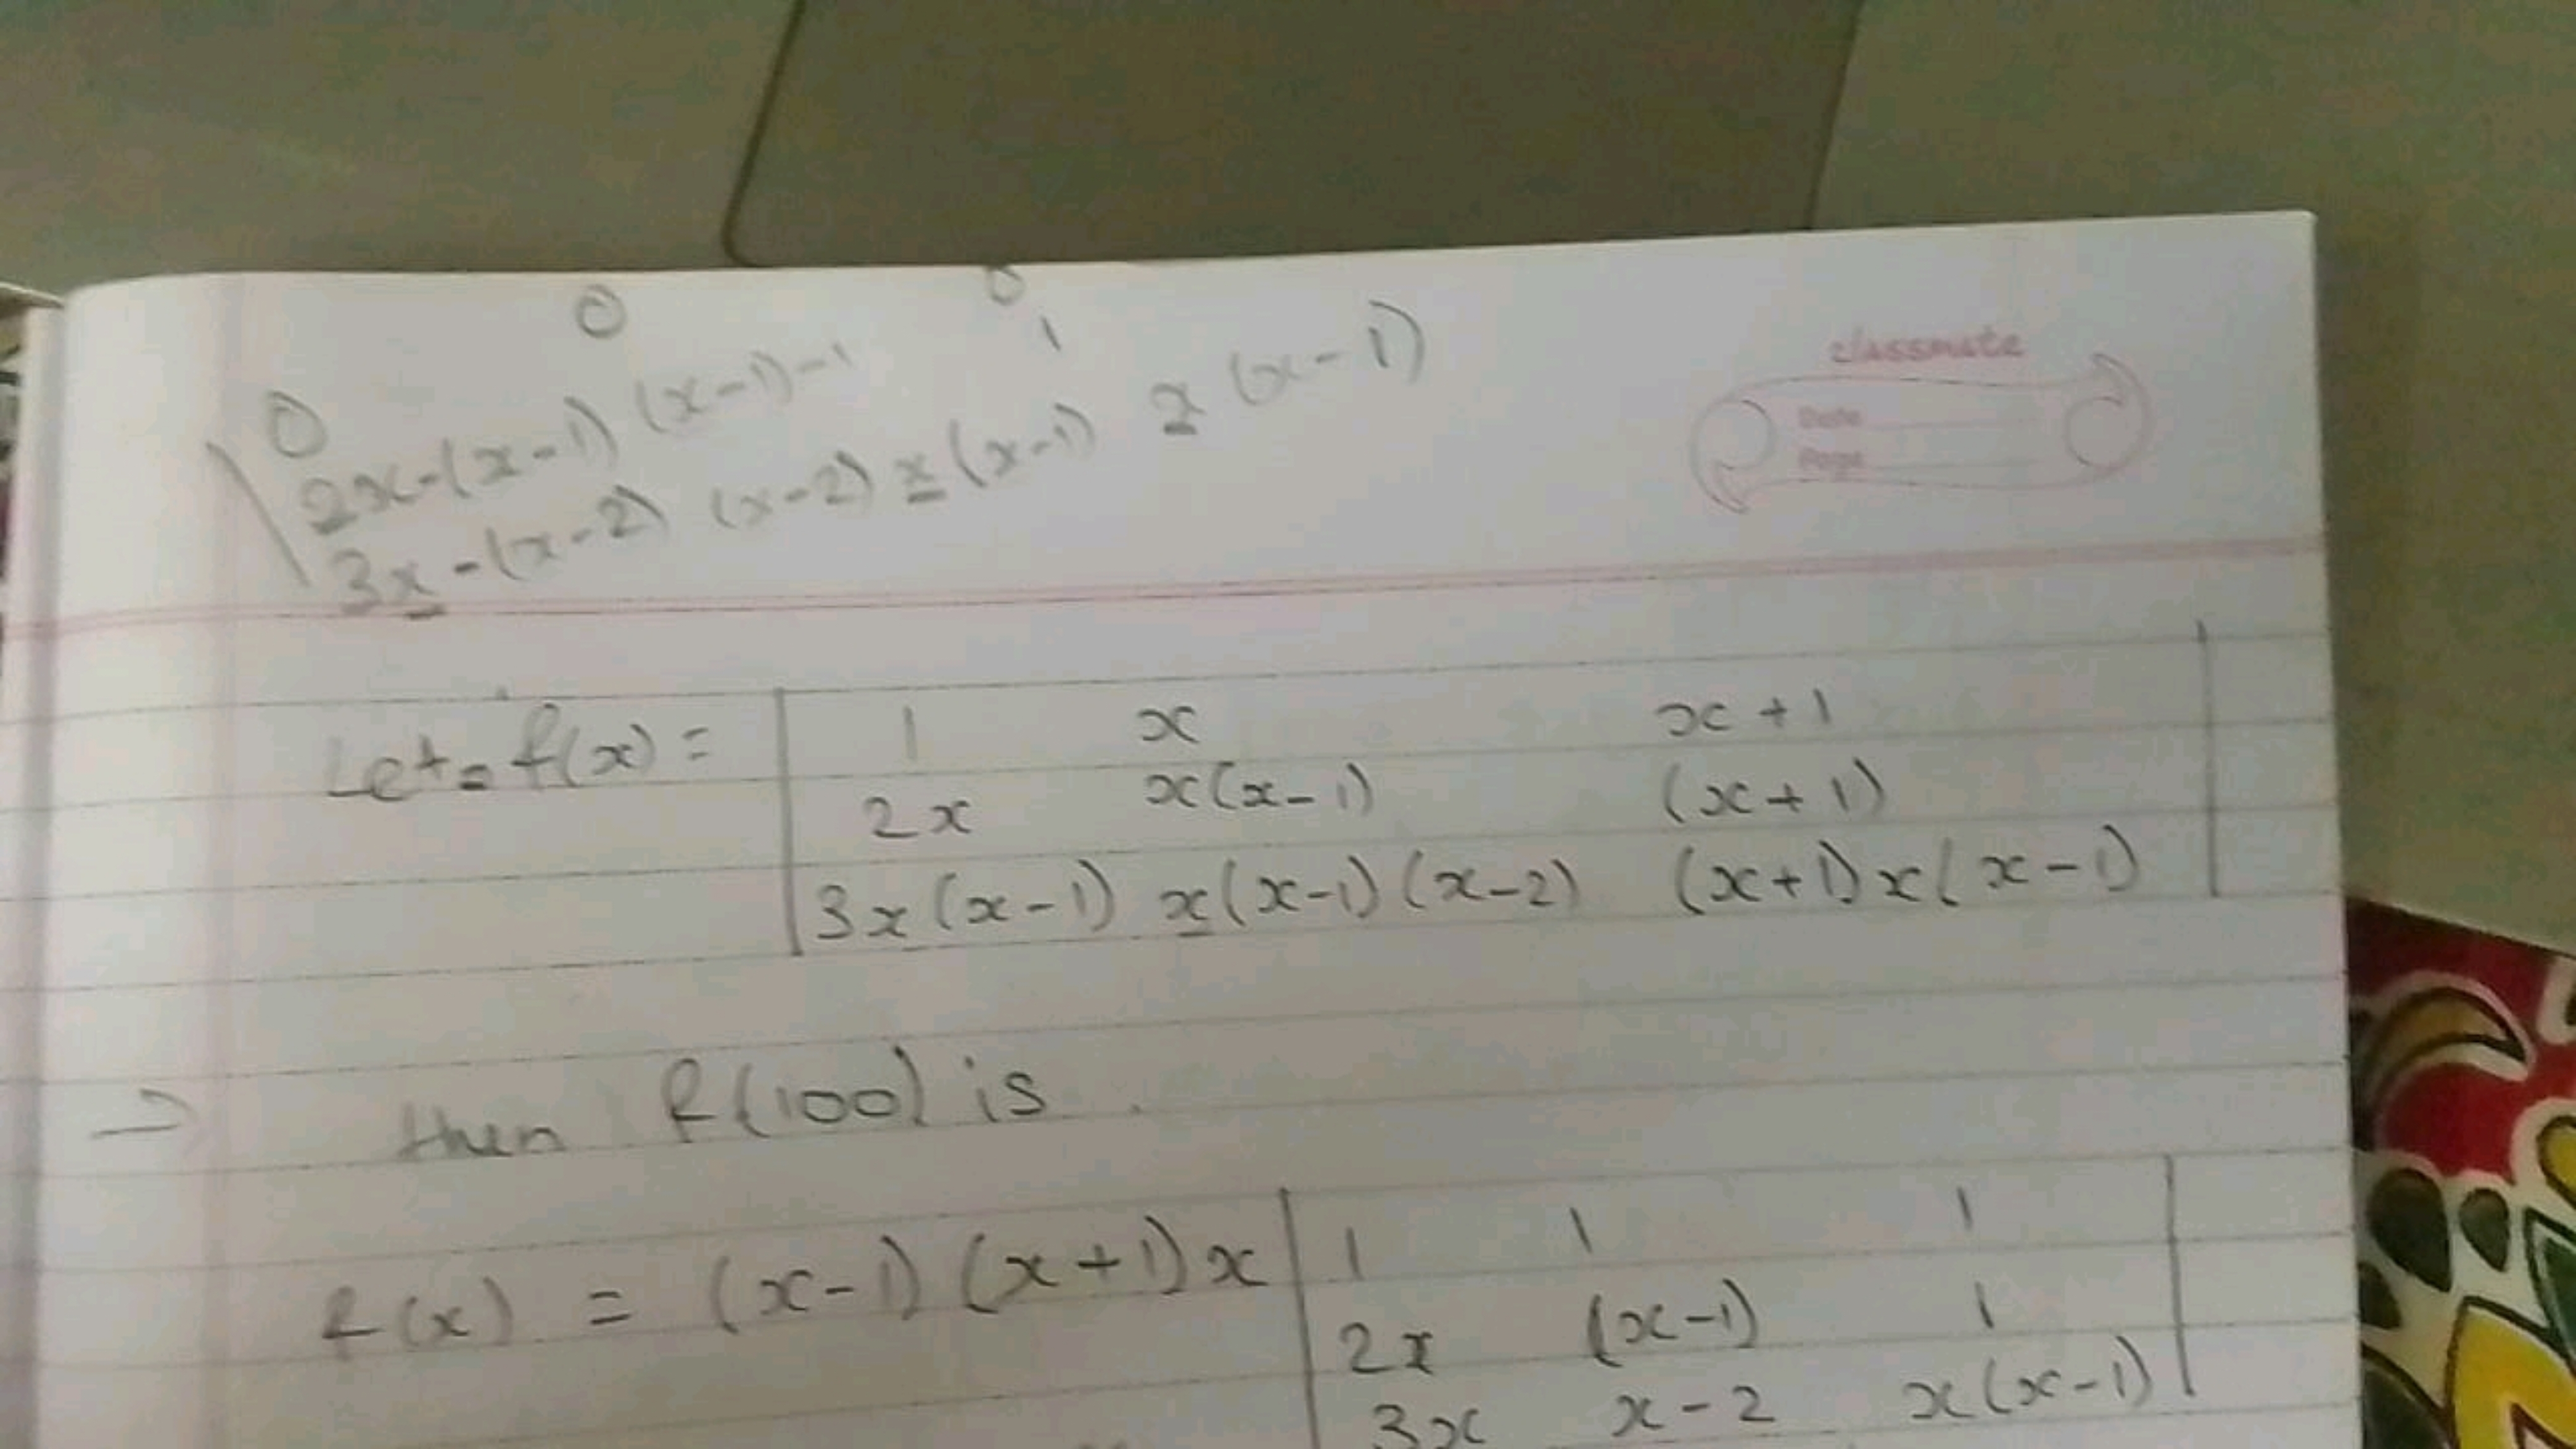 0 0 0
2x-(x-1) (x-1)-1 1
3x-(x-2) (x-2) x(x-1) x (x-1)
classmate
Date
Page
Let = f(x) = | 1 x x+1 |
2x x(x-1) (x+1)
3x(x-1) x(x-1)(x-2) (x+1)x(x-1)
⇒ then f(100) is .
f(x) = (x-1)(x+1)x | 1 1 1 |
2x (x-1) 1
3x x-2 x(x-1)